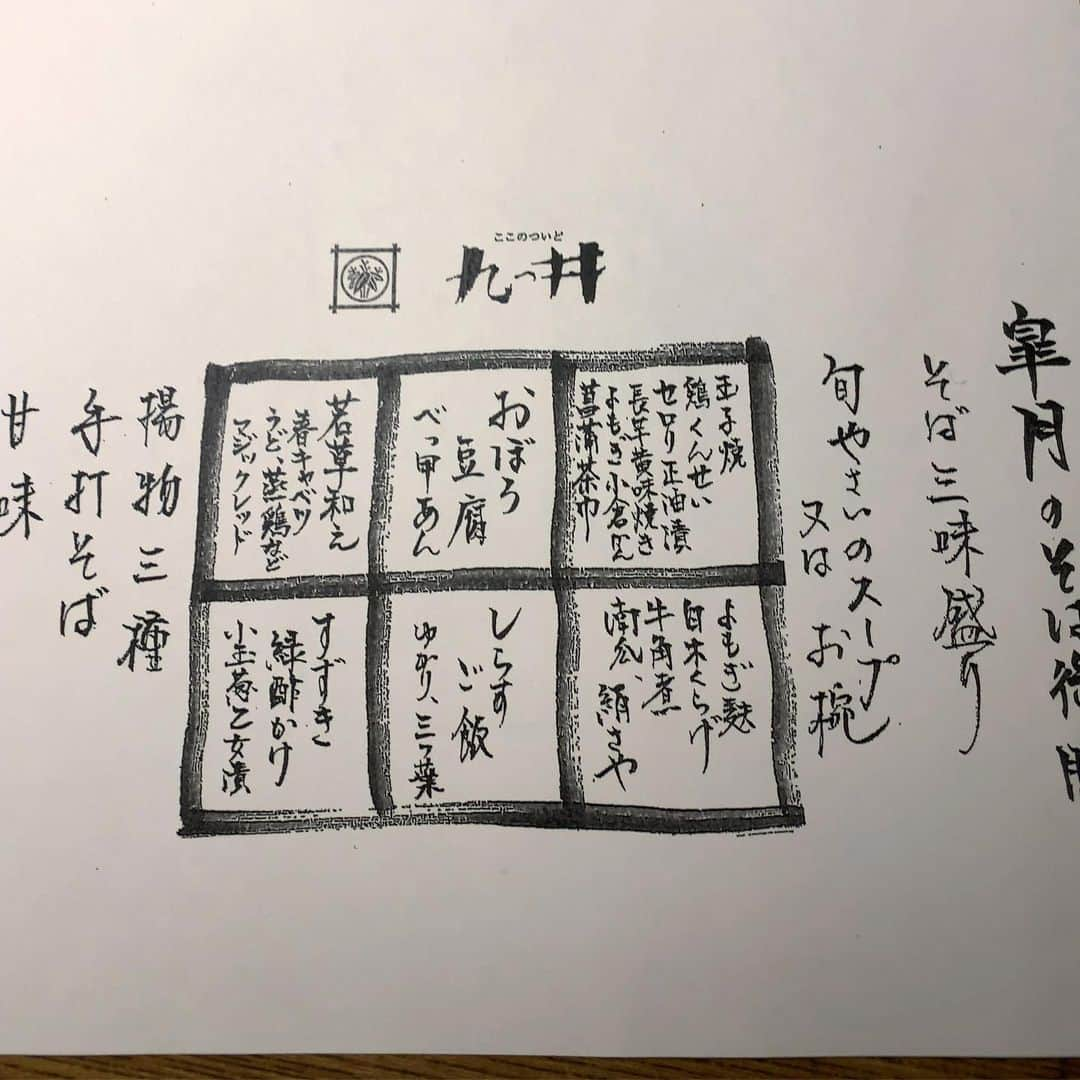 皐月のそば
そば三味盛り
旬やさいのスープ
又は お椀
ここのついど
九つ井
玉子焼
鶏くんせい
セロリ正油漬
長芋黄味焼き
よもぎ小倉
菖蒲茶巾
おぼろ
豆腐
べっ甲あん
若草和え
春キャベツ
うど、蒸し鶏など
マジックレッド
よもぎ麩
白木くらげ
牛角煮
南瓜、絹さや
しらす
ご飯
ゆかり、三ツ葉
すずき
緑酢かけ
小玉葱乙女漬
揚物三種
手打そば
甘味